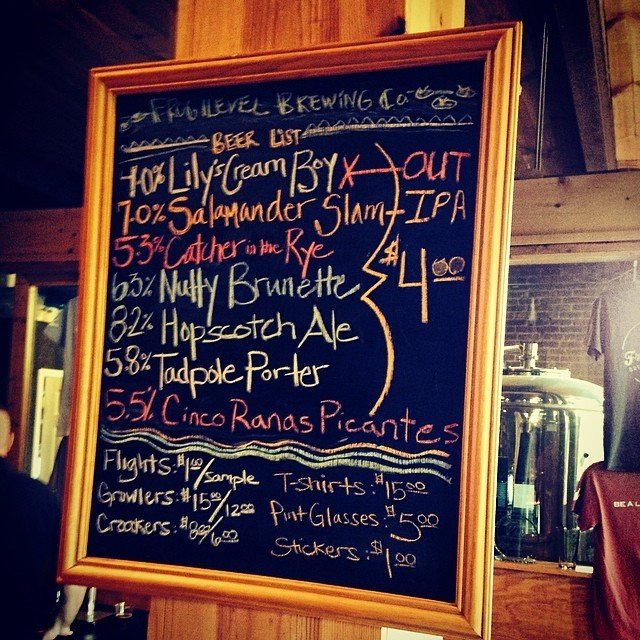 FROG LEVEL BREWING Co.
BEER LIST
4.0% Lily's Cream Boy X OUT
7.0% Salamander Slam - IPA
5.3% Catcher in the Rye
6.3% Nutty Brunette
8.2% Hopscotch Ale
5.8% Tadpole Porter
$4.00
5.5% Cinco Ranas Picantes
Flights: $1.00/sample
Growlers: $15.00/12.00
Croakers: $8.00/6.00
T-shirts: $15.00
Pint Glasses: $5.00
Stickers: $1.00
BE A L